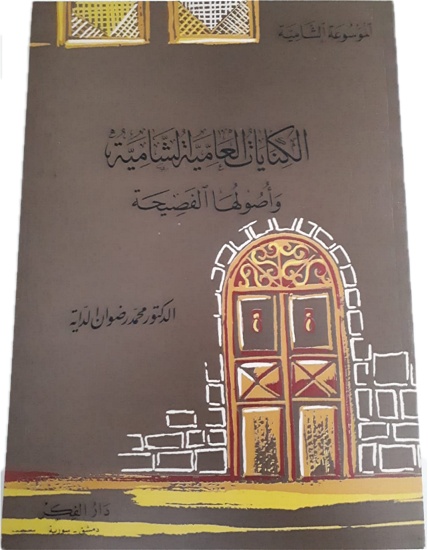 الموسوعة الشامية
الكنايات العامية الشامية
وأصولها الفصيحة
الدكتور محمد رضوان الداية
دار الفكر
دمشق - سورية